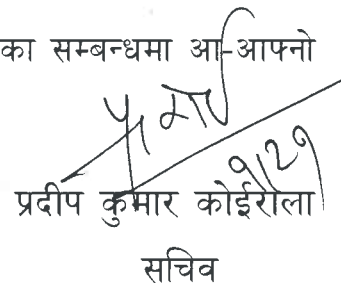 का सम्बन्धमा आ-आफ्नो
प्रदीप कुमार कोईराला
सचिव